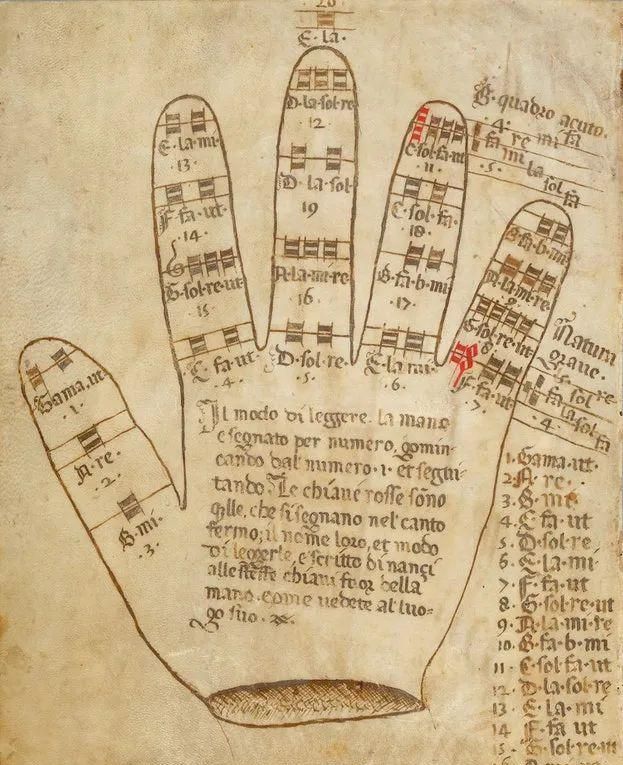 20
E·la·
D·la·sol·re
12
E·la·mi·
13·
C·sol·fa·ut
11
♮·quadro acuto·
·4· re mi fa
fa mi la sol fa
·5·
D·la·sol·
19
F·fa·ut·
·14·
C·sol·fa·
·18·
B·fa·b·mi
G·sol·re·ut
15
A·la·mi·re
16
B·fa·b·mi
·17·
A·la·mi·re
9
G·sol·re·ut
8
C·fa·ut
·4·
D·sol·re·
·5·
E·la·mi·
·6·
F·fa·ut
·7·
Natura
grave·
·5· sol re
fa la sol fa
·4·
Gama·ut·
·1·
A·re·
·2·
B·mi·
·3·
Il modo di leggere· la mano
e segnato per numero, gomin-
cando dal numero·1· et segui-
tando· Le chiavi rosse sono
qlle, che si segnano nel canto
fermo; il nome loro, et modo
di leggerle, e scritto di nanci
alle stesse chiavi fuor della
mano·come vedete al luo-
go suo·
1·Gama·ut·
2·A·re·
3·B·mi·
4·C·fa·ut
5·D·sol·re
6·E·la·mi
7·F·fa·ut
8·G·sol·re·ut
9·A·la·mi·re
10·B·fa·b·mi
11·C·sol·fa·ut
12·D·la·sol·re
13·E·la·mi
14 F·fa ut
15·G·sol·re·ut